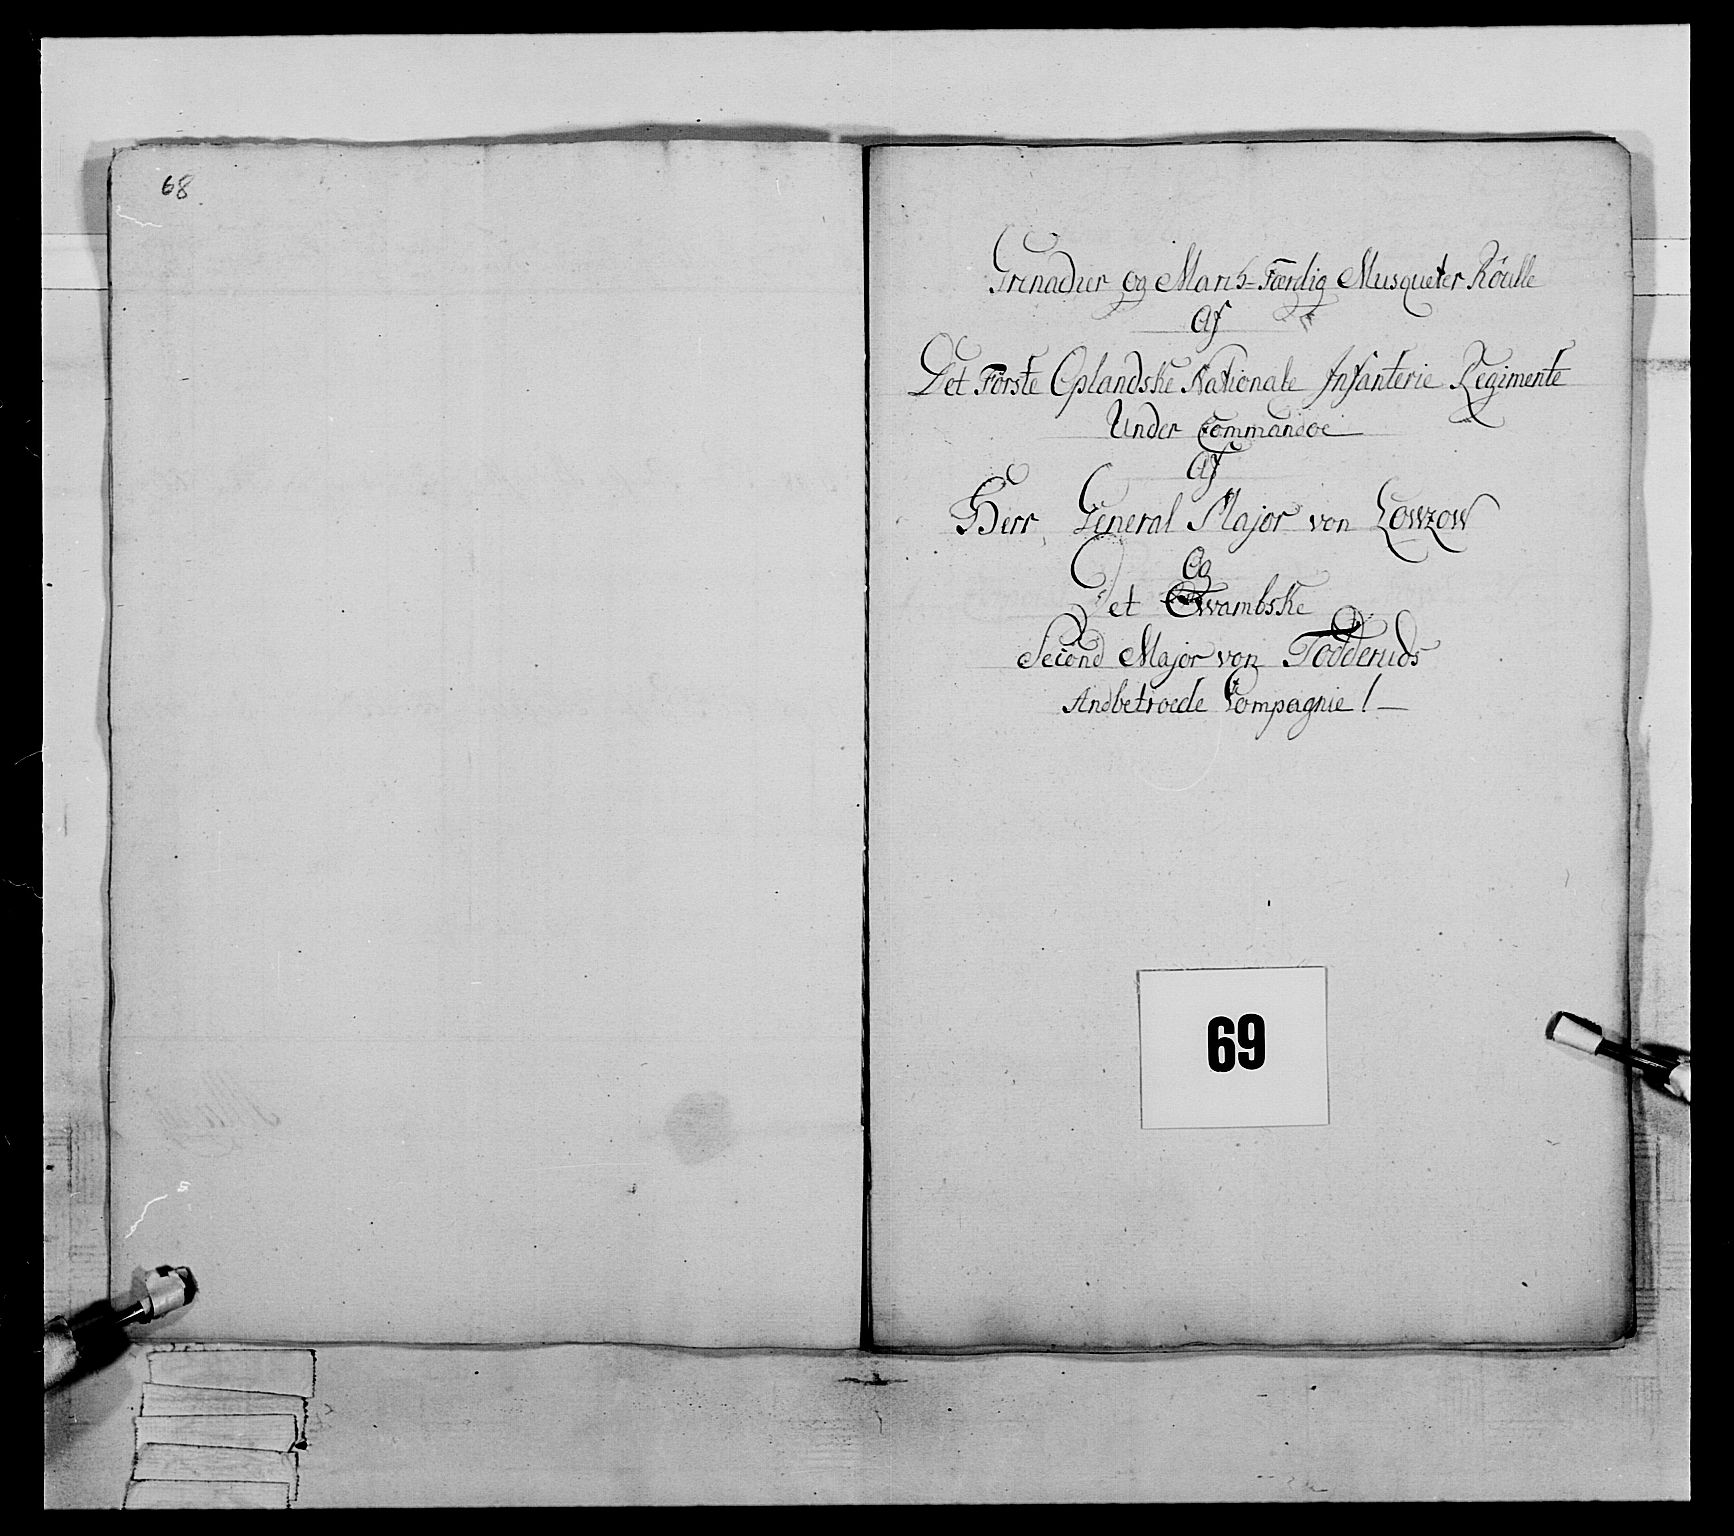 68
Grenadier og March-Færdig Musqueter Röulle
Af
Det Förste Oplandske Nationale Infanterie Regimente
Under Commandoe
Af
Herr General Major von Lowzow
Og
Det
Second Major von Todderuds
Anbetroede Compagnie /
69